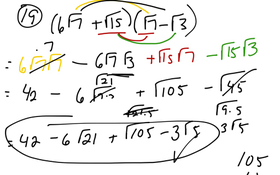 19) (6√7 + √15)(√7 − √3)
.7
= 6√7√7 − 6√7√3 + √15√7 − √15√3
√21
= 42 − 6√7·3 + √105 − √45
√9·5
3√5
42 − 6√21 + √105 − 3√5
105